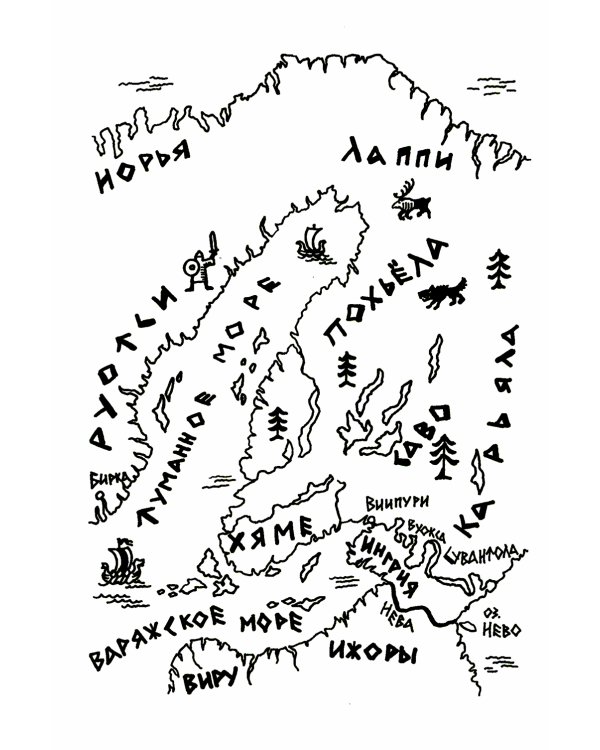 НОРЬЯ
ЛАППИ
ПОХЬЁЛА
РУОТЬИ
ТУМАННОЕ МОРЕ
КАРЬЯЛА
САВО
БИРКА
ХЯМЕ
ВИИПУРИ
ВУОКСА
СУВАНТОЛА
ИНГРИЯ
НЕВА
ОЗ.
НЕВО
ВАРЯЖСКОЕ МОРЕ
ИЖОРЫ
ВИРУ